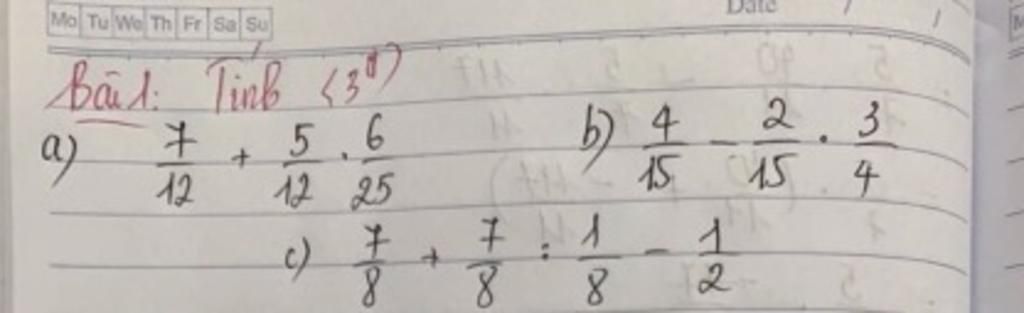 Mo Tu We Th Fr Sa Su Date / /
Bài 1: Tính (3đ)
a) 7/12 + 5/12 . 6/25 b) 4/15 - 2/15 . 3/4
c) 7/8 + 7/8 : 1/8 - 1/2